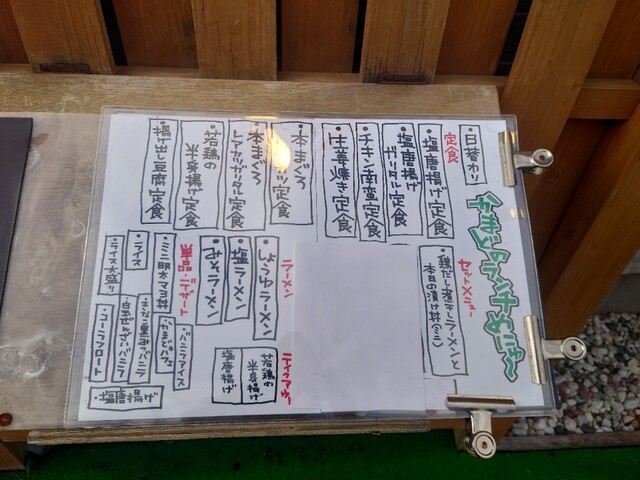 かまどのランチめにゅ〜
・日替わり
定食
・塩唐揚げ定食
・塩唐揚げガッツリ定食
・チキン南蛮定食
・生姜焼き定食
・本まぐろ
カツ定食
・本まぐろ
レアカツガッツリ定食
・若鶏の
半身揚げ定食
・揚げ出し豆腐定食
セットメニュー
・鶏だし煮干しラーメンと
本日の漬け丼(ミニ)
ラーメン
・しょうゆラーメン
・塩ラーメン
・みそラーメン
単品・デザート
・ミニ明太マヨ丼
・ライス
・ライス大盛り
・バニラアイス
・コーラフロート
・塩唐揚げ
テイクアウト
若鶏の
半身揚げ
塩唐揚げ